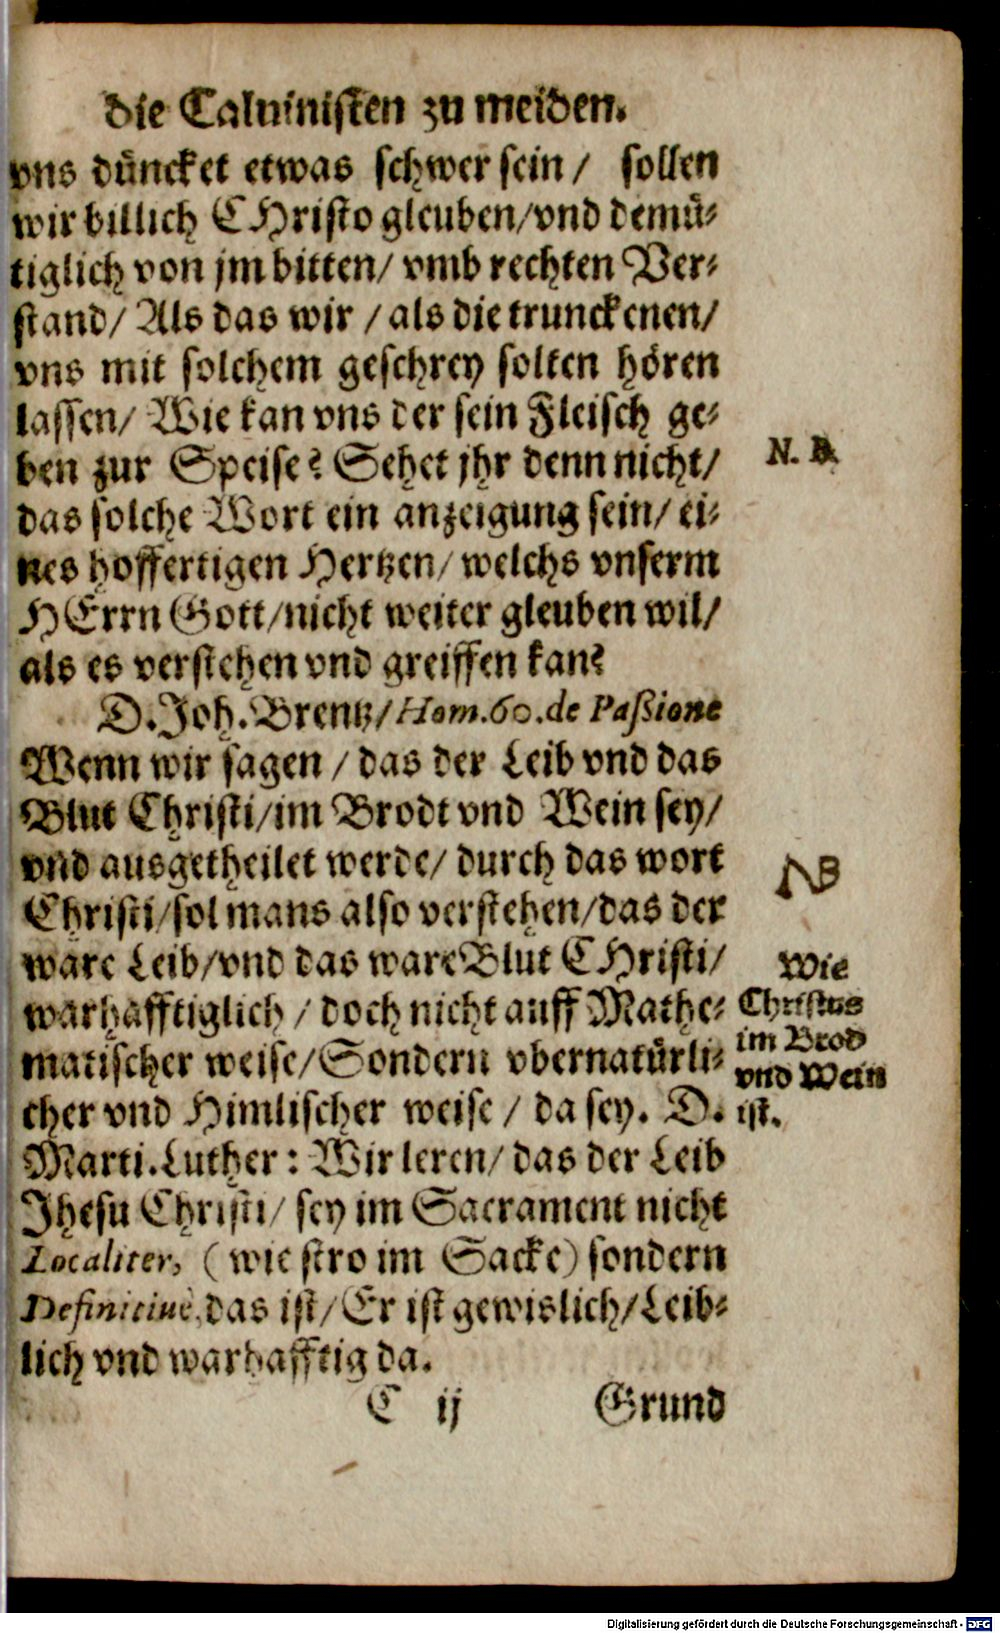 die Calvinisten zu meiden.
vns düncket etwas schwer sein / sollen
wir billich CHristo gleuben/vnd demü-
tiglich von jm bitten/ vmb rechten Ver-
stand/ Als das wir / als die trunckenen/
vns mit solchem geschrey solten hören
lassen/ Wie kan vns der sein Fleisch ge-
ben zur Speise? Sehet jhr denn nicht/
N. B.
das solche Wort ein anzeigung sein/ ei-
nes hoffertigen Hertzen/ welchs vnserm
HErrn Gott/nicht weiter gleuben wil/
als es verstehen vnd greiffen kan?
D. Joh. Brentz/ Hom. 60. de Paßione
Wenn wir sagen / das der Leib vnd das
Blut Christi/im Brodt vnd Wein sey/
vnd ausgetheilet werde/ durch das wort
NB
Christi/sol mans also verstehen/das der
ware Leib/vnd das ware Blut CHristi/
warhafftiglich / doch nicht auff Mathe-
matischer weise/Sondern vbernatürli-
cher vnd Himlischer weise / da sey. D.
Wie
Christus
im Brod
vnd Wein
ist.
Marti. Luther: Wir leren/ das der Leib
Jhesu Christi/ sey im Sacrament nicht
Localiter, (wie stro im Sacke) sondern
Definitiuè, das ist/ Er ist gewislich/Leib-
lich vnd warhafftig da.
C ij Grund
Digitalisierung gefördert durch die Deutsche Forschungsgemeinschaft - DFG